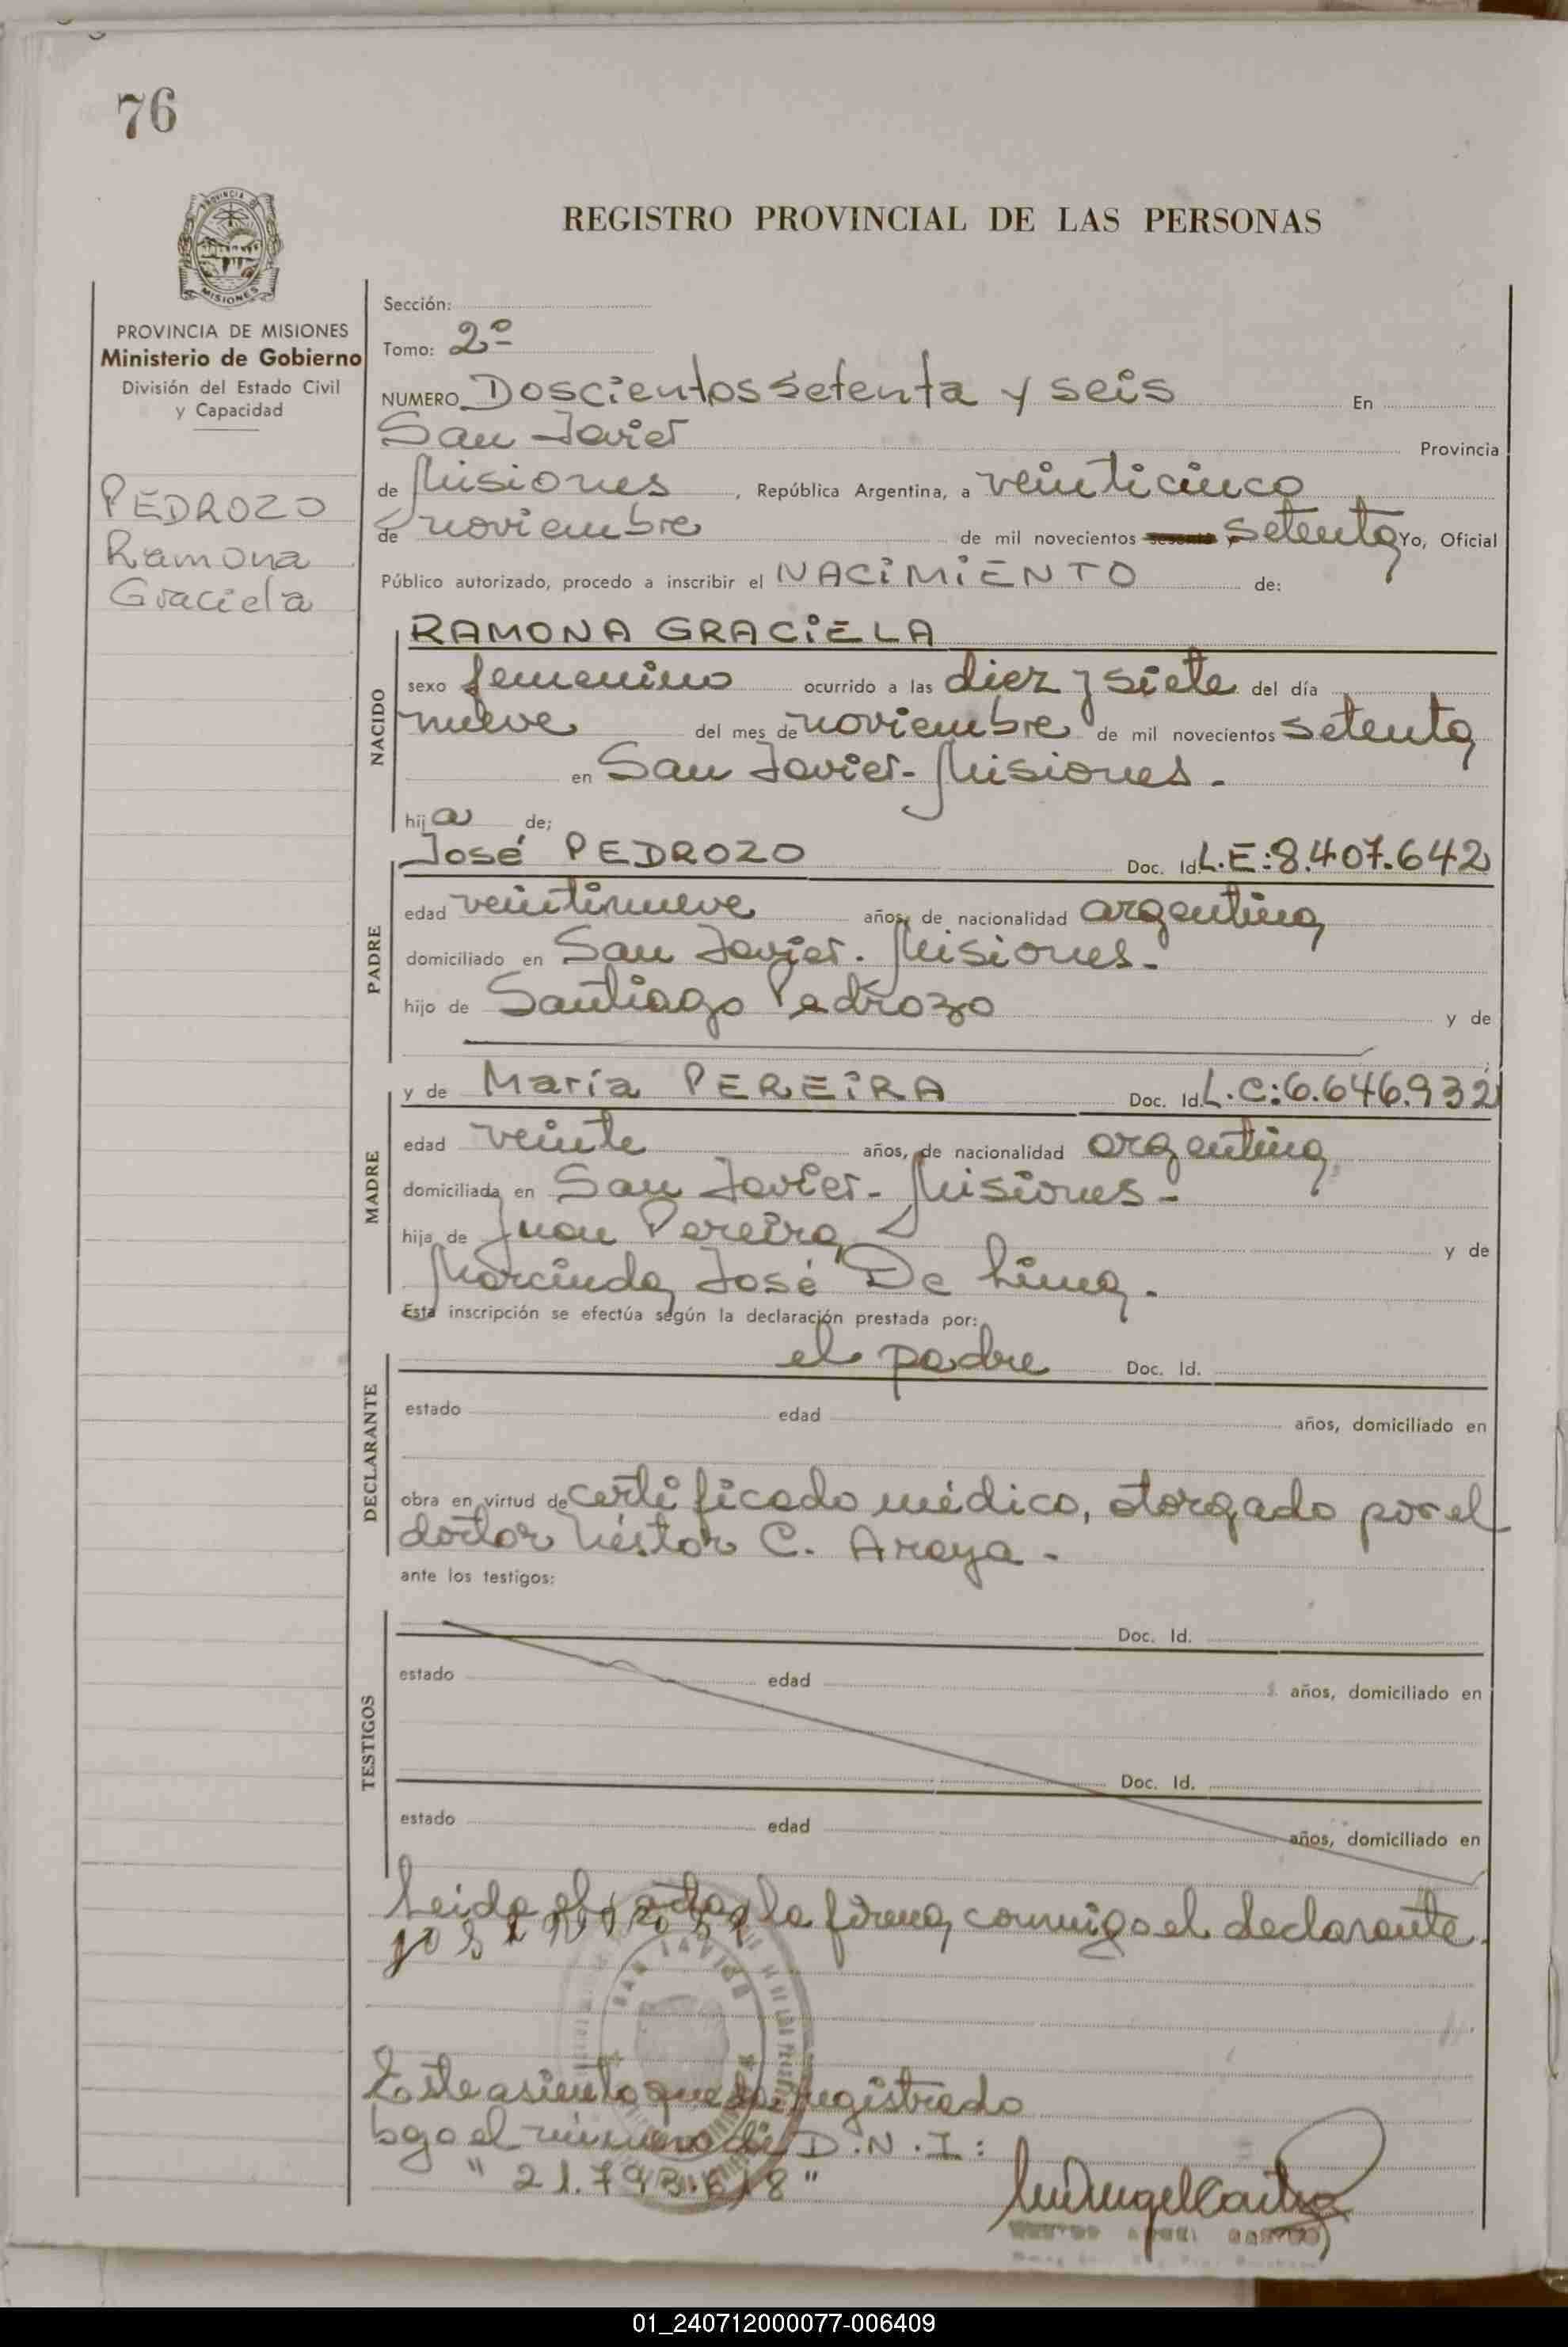 76
PROVINCIA DE
MISIONES
REGISTRO PROVINCIAL DE LAS PERSONAS
PROVINCIA DE MISIONES
Ministerio de Gobierno
División del Estado Civil
y Capacidad
PEDROZO
Ramona
Graciela
Sección:
Tomo: 2º
NUMERO Doscientos setenta y seis En
San Javier Provincia
de Misiones, República Argentina, a veinticinco
de noviembre de mil novecientos setenta Yo, Oficial
Público autorizado, procedo a inscribir el NACIMIENTO de:
NACIDO
RAMONA GRACIELA
sexo femenino ocurrido a las diez y siete del día
nueve del mes de noviembre de mil novecientos setenta
en San Javier - Misiones.
hija de;
PADRE
José PEDROZO Doc. Id. L.E: 8.407.642
edad veintinueve años, de nacionalidad argentina
domiciliado en San Javier. Misiones.-
hijo de Santiago Pedrozo y de
MADRE
y de María PEREIRA Doc. Id. L.C: 6.646.932
edad veinte años, de nacionalidad argentina
domiciliada en San Javier - Misiones -
hija de Juan Pereira y de
Marcinda José De Lima.
Esta inscripción se efectúa según la declaración prestada por:
DECLARANTE
el padre Doc. Id.
estado edad años, domiciliado en
obra en virtud de certificado médico, otorgado por el
doctor Néstor C. Araya -
ante los testigos:
TESTIGOS
Doc. Id.
estado edad años, domiciliado en
Doc. Id.
estado edad años, domiciliado en
Leida el acta, la firma conmigo el declarante.
SAN JAVIER
Este asiento queda registrado
bajo el número de D.N.I:
" 21.793.618 "
01_240712000077-006409